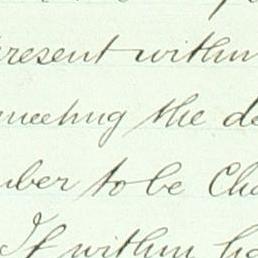 present within
meeting the de
ber to be Cha
If within ha